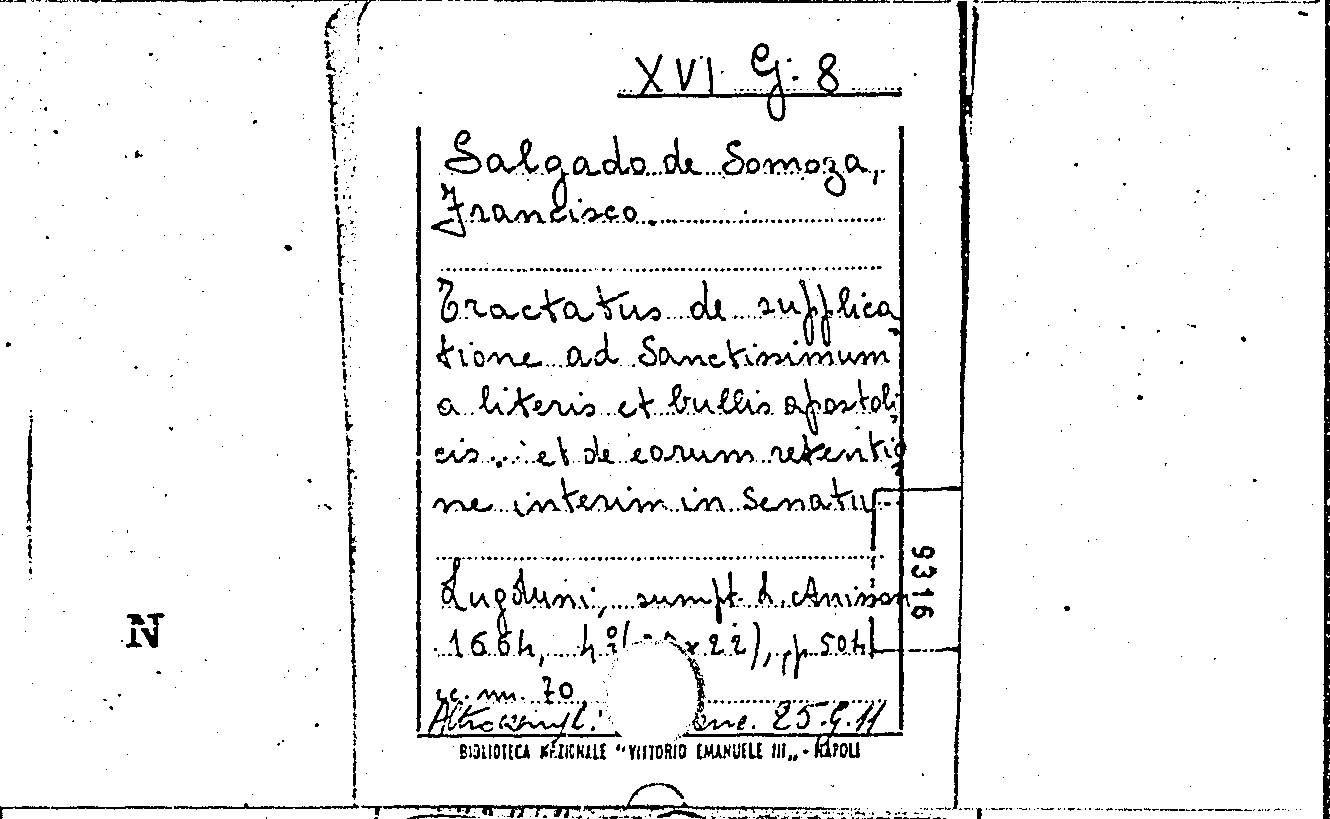 XVI G. 8
Salgado de Somoza,
Francisco.
Tractatus de supplica
tione ad Sanctissimum
a literis et bullis apostoli
cis... et de eorum retentio
ne interim in Senatu
Lugduni, sumpt. L. Anisson
1664, 4° x 22), p 504
cc. nn. 70
25.G.11
BIBLIOTECA NAZIONALE "VITTORIO EMANUELE III„ - NAPOLI
9316
N